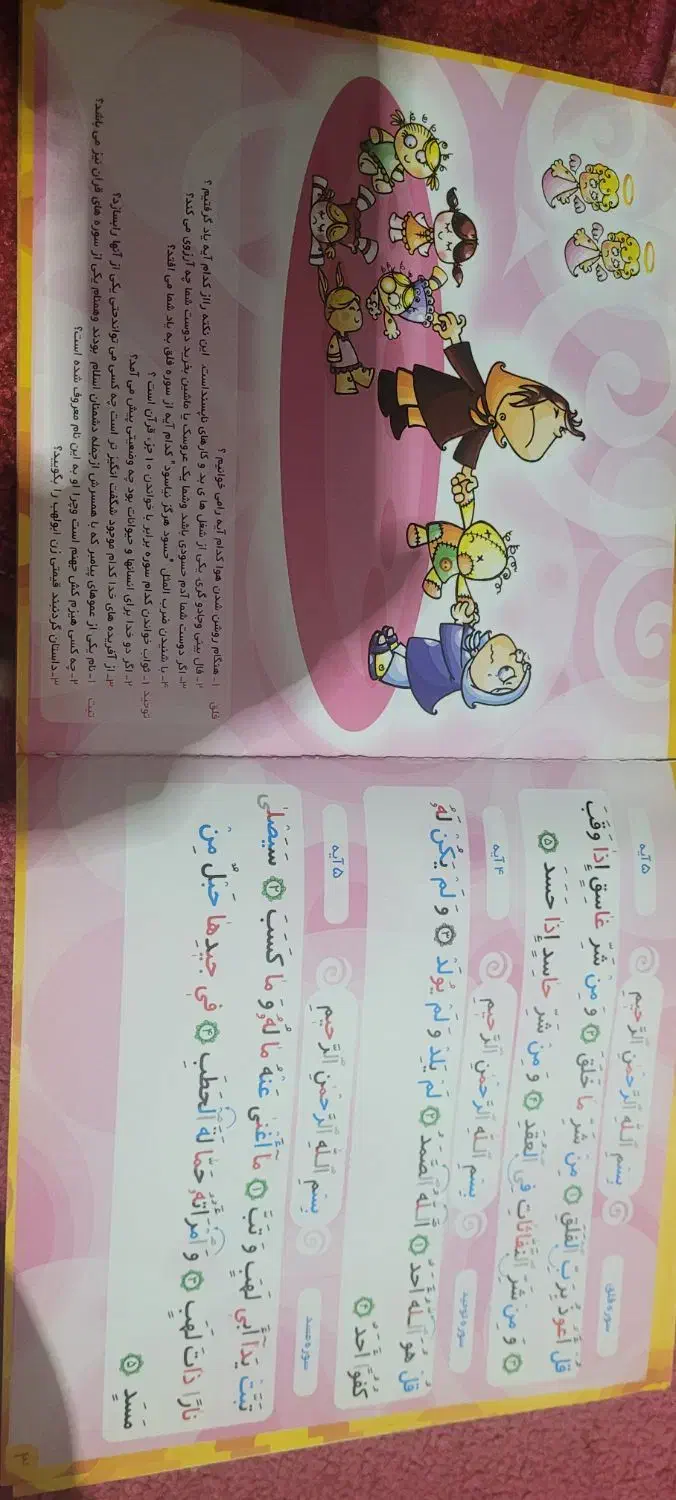 سوره فلق
بِسْمِ اللَّهِ الرَّحْمٰنِ الرَّحِیمِ
۵ آیه
قُلْ أَعُوذُ بِرَبِّ الْفَلَقِ ۱ مِنْ شَرِّ مَا خَلَقَ ۲ وَ مِنْ شَرِّ غَاسِقٍ إِذَا وَقَبَ
۳ وَ مِنْ شَرِّ النَّفَّاثَاتِ فِی الْعُقَدِ ۴ وَ مِنْ شَرِّ حَاسِدٍ إِذَا حَسَدَ ۵
سوره توحید
بِسْمِ اللَّهِ الرَّحْمٰنِ الرَّحِیمِ
۴ آیه
قُلْ هُوَ اللَّهُ أَحَدٌ ۱ اَللَّهُ الصَّمَدُ ۲ لَمْ یَلِدْ وَ لَمْ یُولَدْ ۳ وَ لَمْ یَکُنْ لَهُ
کُفُوًا أَحَدٌ ۴
سوره مسد
بِسْمِ اللَّهِ الرَّحْمٰنِ الرَّحِیمِ
۵ آیه
تَبَّتْ یَدَا أَبِی لَهَبٍ وَ تَبَّ ۱ مَا أَغْنٰی عَنْهُ مَالُهُ وَ مَا کَسَبَ ۲ سَیَصْلٰی
نَارًا ذَاتَ لَهَبٍ ۳ وَ امْرَأَتُهُ حَمَّالَةَ الْحَطَبِ ۴ فِی جِیدِهَا حَبْلٌ مِنْ
مَسَدٍ ۵
۳
فلق ۱- هنگام روشن شدن هوا کدام آیه رامی خوانیم ؟
۲- فال بینی وجادو گری یکی از شغل ها ی بد و کارهای ناپسنداست. این نکته رااز کدام آیه یاد گرفتیم ؟
۳- اگر دوست شما آدم حسودی باشد وشما یک عروسک یا ماشین بخرید دوست شما چه آرزوی می کند؟
۴- با شنیدن ضرب المثل "حسود هرگز نیاسود" کدام آیه از سوره فلق به یاد شما می افتد؟
توحید ۱- ثواب خواندن کدام سوره برابر با خواندن ۱۰ جزء قرآن است ؟
۲- اگر دو خدا برای انسانها و حیوانات بود چه وضعیتی پیش می آمد؟
۳- از آفریده های خدا کدام موجود شگفت انگیز تر است چه کسی می تواندحتی یکی از آنها رابسازد؟
تبت ۱- نام یکی از عموهای پیامبر که با همسرش ازجمله دشمنان اسلام بودند وهمنام یکی از سوره های قران نیز می باشد؟
۲- چه کسی هیزم کش جهنم است وچرا او به این نام معروف شده است؟
۳- داستان گردنبند قیمتی زن ابولهب را بگویید؟